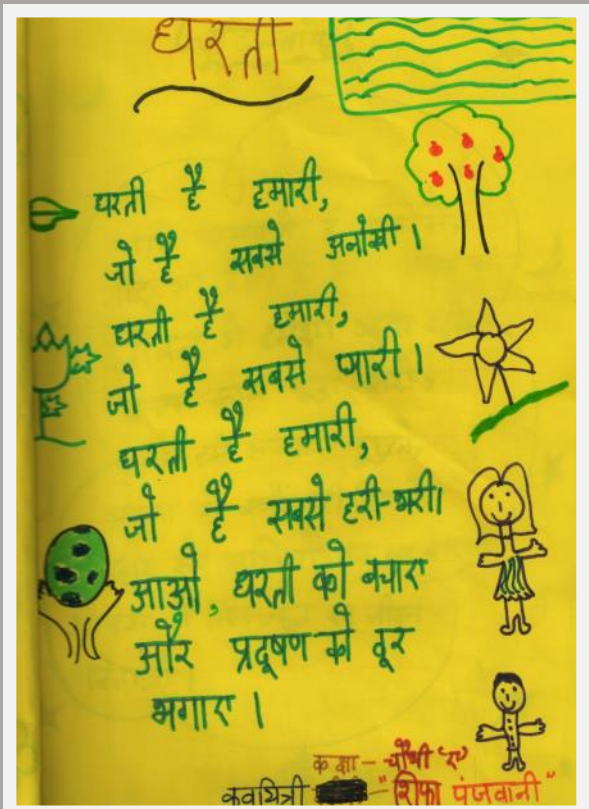 धरती
धरती है हमारी,
जो है सबसे अनोखी।
धरती है हमारी,
जो है सबसे प्यारी।
धरती है हमारी,
जो है सबसे हरी-भरी।
आओ, धरती को बचाए
और प्रदूषण को दूर
भगाए।
कक्षा - चौथी "स"
कवयित्री - "शिफा पंजवानी"